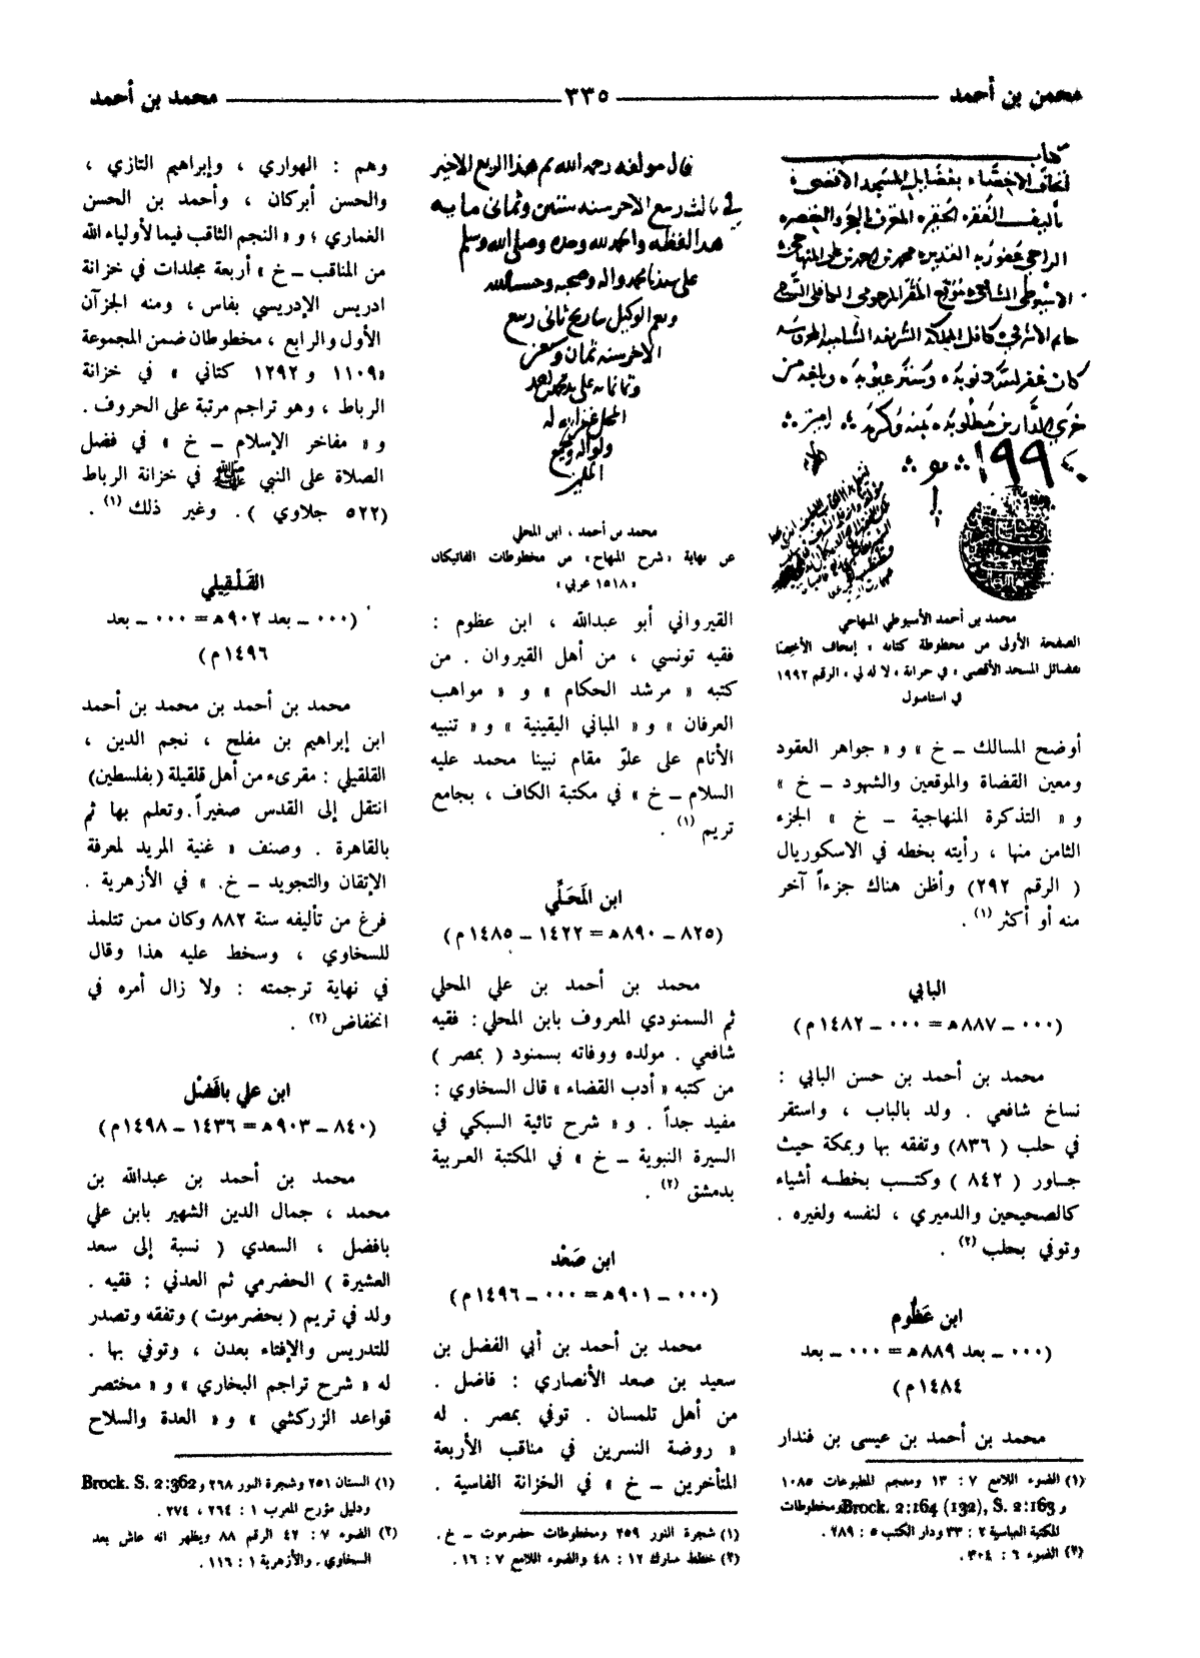 محمد بن أحمد ــــــ ٣٣٥ ــــــ محمد بن أحمد
كتاب
اتحاف الاخصاء بفضايل المسجد الاقصى
١٩٩٢
محمد بن أحمد الأسيوطي المنهاجي
الصفحة الأولى من مخطوطة كتابه « إتحاف الأخصا
بفضائل المسجد الأقصى » في خزانة « لا له لي » الرقم ١٩٩٢
في استامبول
أوضح المسالك ــ خ » و « جواهر العقود
ومعين القضاة والموقعين والشهود ــ خ »
و « التذكرة المنهاجية ــ خ » الجزء
الثامن منها ، رأيته بخطه في الاسكوريال
( الرقم ٢٩٢) وأظن هناك جزءاً آخر
منه أو أكثر (١) .
البابي
(٠٠٠ ــ ٨٨٧هـ = ٠٠٠ ــ ١٤٨٢م)
محمد بن أحمد بن حسن البابي :
نساخ شافعي . ولد بالباب ، واستقر
في حلب ( ٨٣٦) وتفقه بها وبمكة حيث
جـاور ( ٨٤٢ ) وكتـب بخطـه أشياء
كالصحيحين والدميري ، لنفسه ولغيره .
وتوفي بحلب (٢) .
ابن عَظُوم
(٠٠٠ ــ بعد ٨٨٩هـ = ٠٠٠ ــ بعد
١٤٨٤م)
محمد بن أحمد بن عيسى بن فندار
(١) الضوء اللامع ٧ : ١٣ ومعجم المطبوعات ١٠٨٥
و Brock. 2:164 (132), S. 2:163 ومخطوطات
المكتبة العباسية ٢ : ٣٣ ودار الكتب ٥ : ٢٨٩ .
(٢) الضوء ٦ : ٣٠٤ .
قال مولفه رحمه الله تم هذا الربع الاخير
الاخر سنه ثمان و
محمد بن أحمد ، ابن المحلي
عن نهاية « شرح المنهاج » من مخطوطات الفاتيكان
« ١٥١٨ عربي »
القيرواني أبو عبدالله ، ابن عظوم :
فقيه تونسي ، من أهل القيروان . من
كتبه « مرشد الحكام » و « مواهب
العرفان » و « المباني اليقينية » و « تنبيه
الأنام على علوّ مقام نبينا محمد عليه
السلام ــ خ » في مكتبة الكاف ، بجامع
تريم (١) .
ابن المَحَلِّي
(٨٢٥ ــ ٨٩٠هـ = ١٤٢٢ ــ ١٤٨٥م)
محمد بن أحمد بن علي المحلي
ثم السمنودي المعروف بابن المحلي : فقيه
شافعي . مولده ووفاته بسمنود ( بمصر )
من كتبه « أدب القضاء » قال السخاوي :
مفيد جداً . و « شرح تائية السبكي في
السيرة النبوية ــ خ » في المكتبة العربية
بدمشق (٢) .
ابن صَعْد
(٠٠٠ ــ ٩٠١هـ = ٠٠٠ ــ ١٤٩٦م)
محمد بن أحمد بن أبي الفضل بن
سعيد بن صعد الأنصاري : فاضل .
من أهل تلمسان . توفي بمصر . له
« روضة النسرين في مناقب الأربعة
المتأخرين ــ خ » في الخزانة الفاسية .
(١) شجرة النور ٢٥٩ ومخطوطات حضرموت ــ خ .
(٢) خطط مبارك ١٢ : ٤٨ والضوء اللامع ٧ : ١٦ .
وهم : الهواري ، وإبراهيم التازي ،
والحسن أبركان ، وأحمد بن الحسن
الغماري ؛ و « النجم الثاقب فيما لأولياء الله
من المناقب ــ خ » أربعة مجلدات في خزانة
ادريس الإدريسي بفاس ، ومنه الجزآن
الأول والرابع ، مخطوطان ضمن المجموعة
«١١٠٩ و ١٢٩٢ كتاني » في خزانة
الرباط ، وهو تراجم مرتبة على الحروف .
و « مفاخر الإسلام ــ خ » في فضل
الصلاة على النبي ﷺ في خزانة الرباط
(٥٢٢ جلاوي ) . وغير ذلك (١) .
القَلْقِيلي
(٠٠٠ ــ بعد ٩٠٢هـ = ٠٠٠ ــ بعد
١٤٩٦م)
محمد بن أحمد بن محمد بن أحمد
ابن إبراهيم بن مفلح ، نجم الدين ،
القلقيلي : مقرىء من أهل قلقيلة (بفلسطين)
انتقل إلى القدس صغيراً.وتعلم بها ثم
بالقاهرة . وصنف « غنية المريد لمعرفة
الإتقان والتجويد ــ خ. » في الأزهرية .
فرغ من تأليفه سنة ٨٨٢ وكان ممن تتلمذ
للسخاوي ، وسخط عليه هذا وقال
في نهاية ترجمته : ولا زال أمره في
انخفاض (٢) .
ابن علي بافَضْل
(٨٤٠ ــ ٩٠٣هـ = ١٤٣٦ ــ ١٤٩٨م)
محمد بن أحمد بن عبدالله بن
محمد ، جمال الدين الشهير بابن علي
بافضل ، السعدي ( نسبة إلى سعد
العشيرة ) الحضرمي ثم العدني : فقيه .
ولد في تريم ( بحضرموت ) وتفقه وتصدر
للتدريس والإفتاء بعدن ، وتوفي بها .
له « شرح تراجم البخاري » و « مختصر
قواعد الزركشي » و « العدة والسلاح
(١) البستان ٢٥١ وشجرة النور ٢٦٨ و Brock. S. 2:362
ودليل مؤرخ المغرب ١ : ٢٦٤ ، ٢٧٤ .
(٢) الضوء ٧ : ٤٢ الرقم ٨٨ ويظهر انه عاش بعد
السخاوي . والأزهرية ١ : ١١٦ .